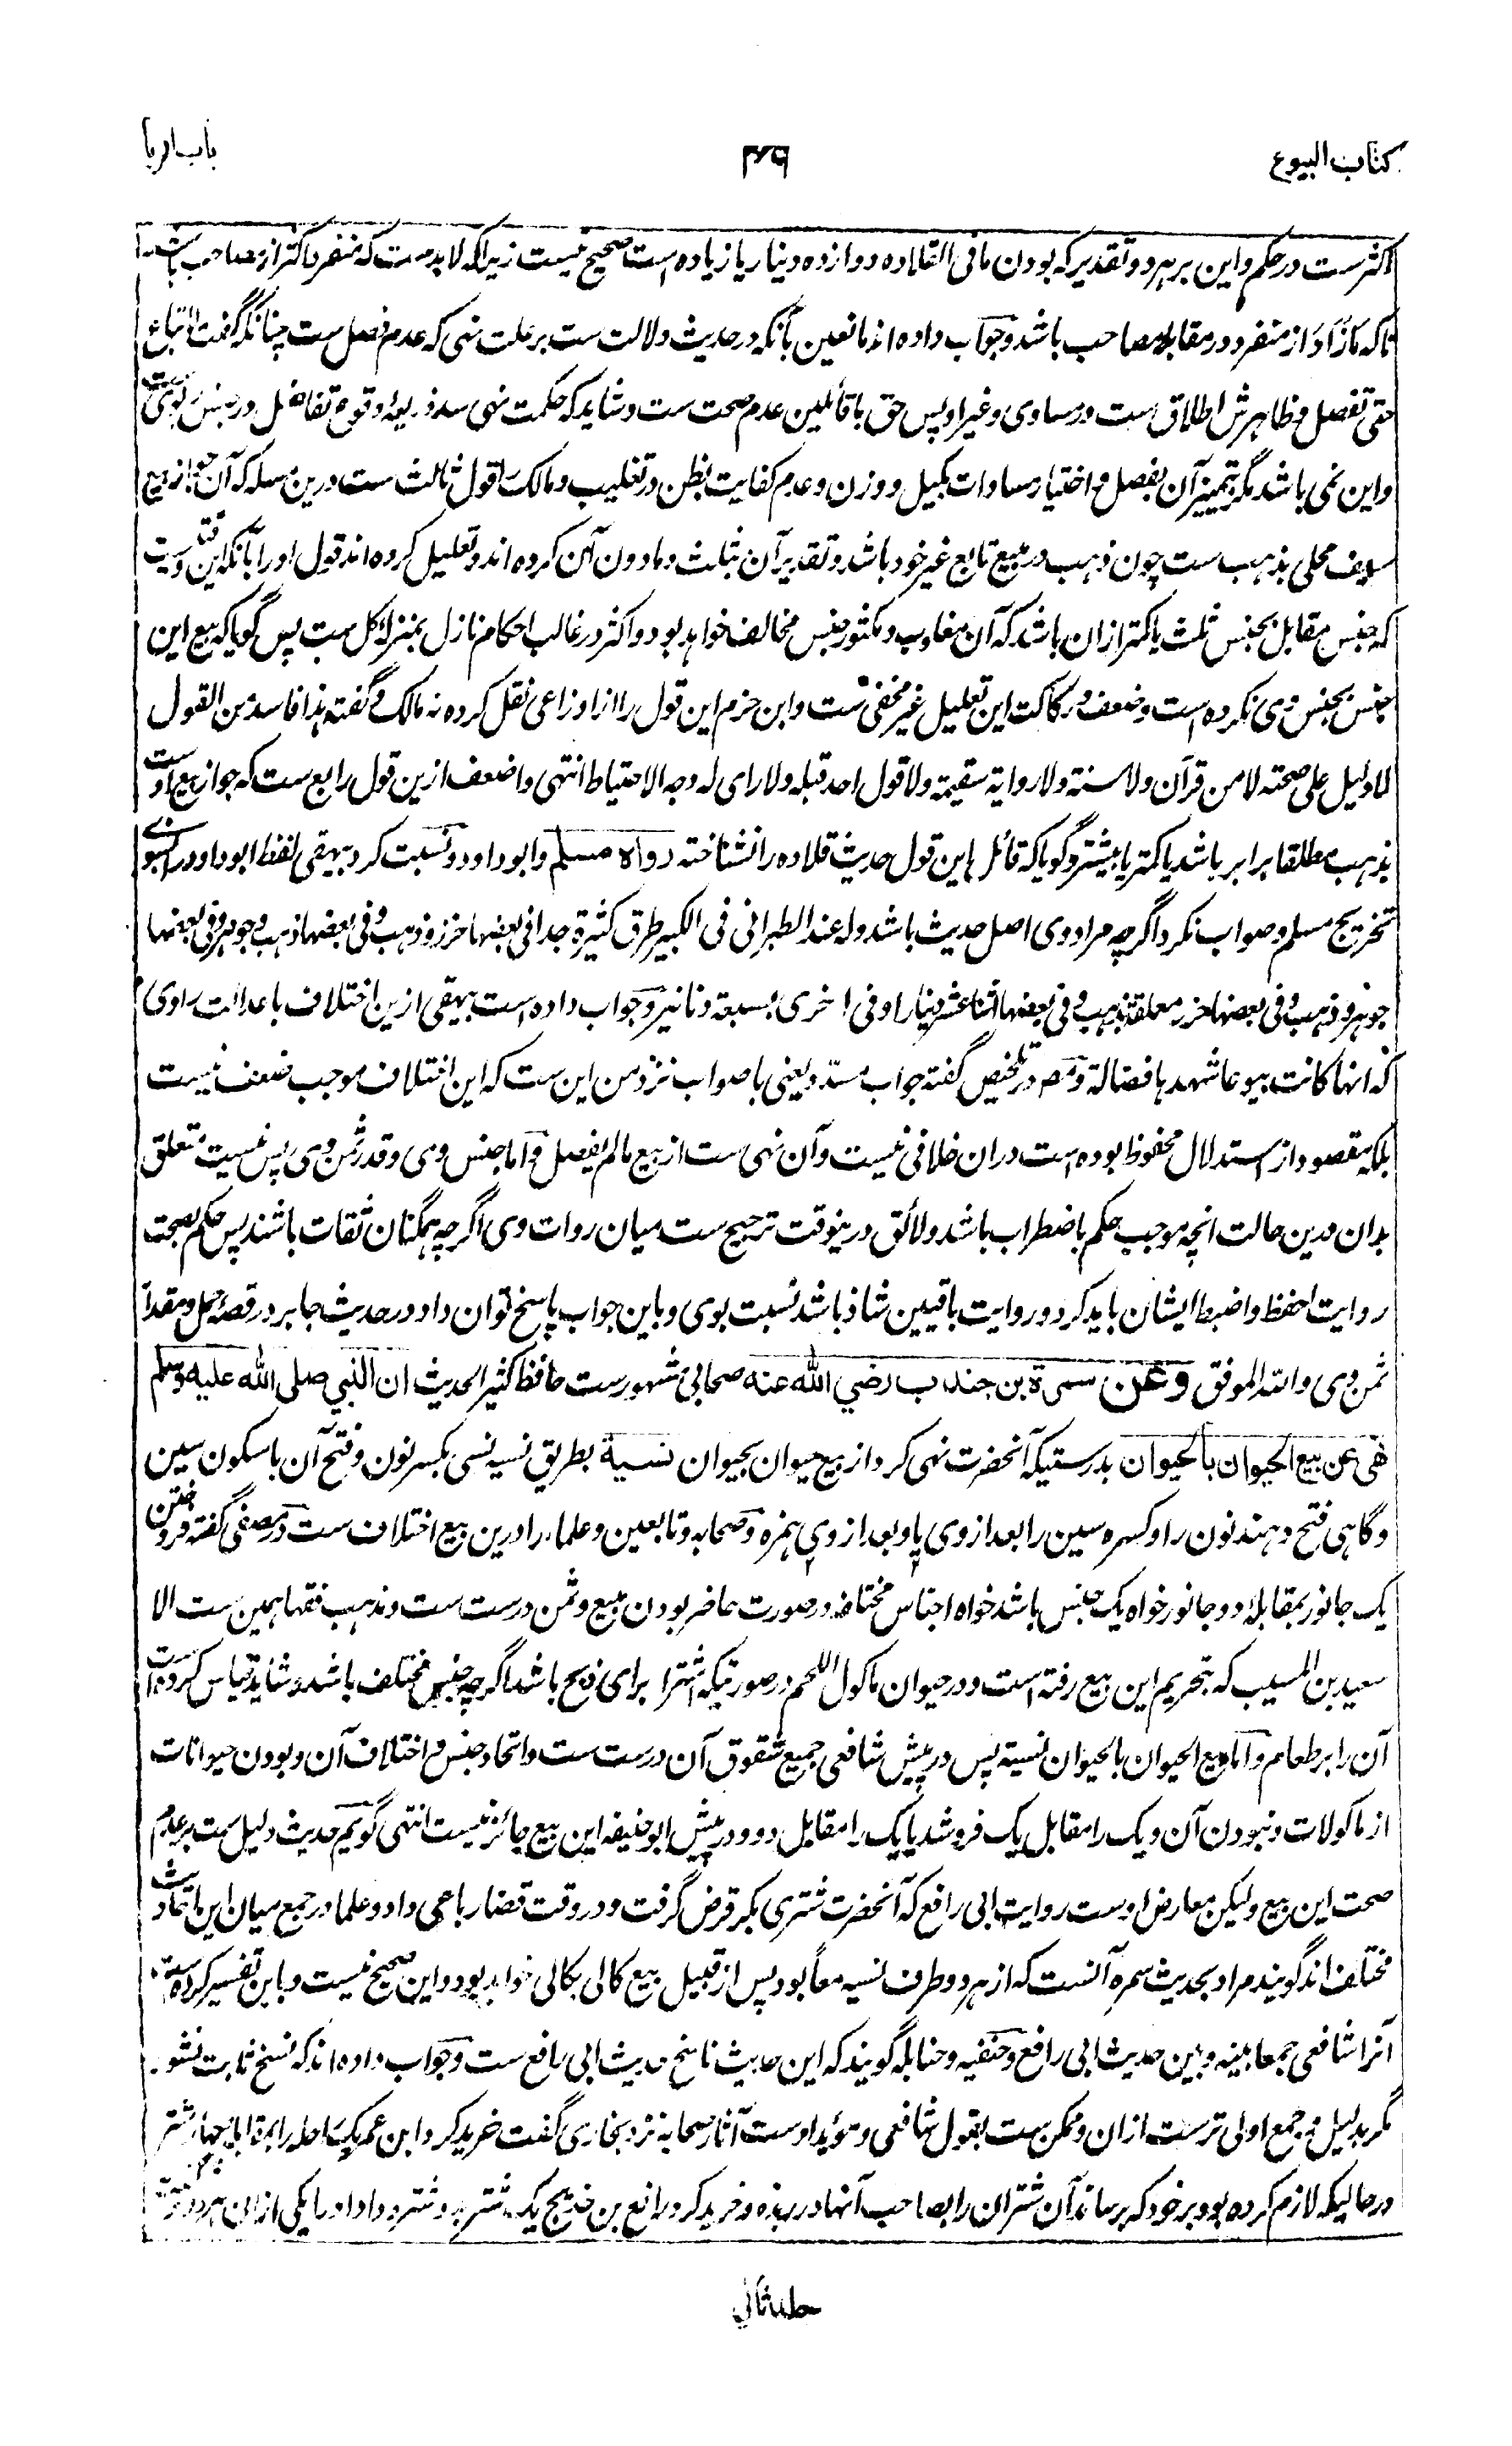 کتاب البیوع
باب الربا
اکثرست در حکم و این بر هر دو تقدیر که بودن ما فی القلاده دوازده دینار یا زیاده است صحیح نیست زیراکه لابدست که منفرد اکثر از مصاحب باشد
تاکه مازاد از منفرد در مقابله مصاحب باشد و جواب داده اند مانعین بآنکه در حدیث دلالت ست بر علت نهی که عدم فصل ست چنانکه گفت لا تباع
حتی تفصل و ظاهرش اطلاق ست در مساوی و غیر او پس حق با قائلین عدم صحت ست و شاید که حکمت نهی سد ذریعۀ وقوع تفاضل در جنس ربوی ست
و این نمی باشد مگر بتمییز آن بفصل و اختیار مساوات بکیل و وزن و عدم کفایت بظن در تغلیب و مالک را قول ثالث ست درین مسئله که آن جواز بیع
سیف محلی بذهب ست چون ذهب در مبیع تابع غیر خود باشد و تقدیر آن بثلث و مادون آن کرده اند و تعلیل کرده اند قول او را بآنکه این وقتی ست
که جنس مقابل بجنس ثلث یا کمتر ازان باشد که آن مغلوب و مکثور جنس مخالف خواهد بود و اکثر در غالب احکام نازل بمنزله کل ست پس گویا که بیع این
جنس بجنس وی نکرده است و ضعف و رکاکت این تعلیل غیر مخفی ست و ابن حزم این قول را از اوزاعی نقل کرده نه مالک و گفته هذا فاسد من القول
لا دلیل علی صحته لا من قرآن ولا سنة ولا روایة سقیمة ولا قول احد قبله ولا رای له وجه الاحتیاط انتهی و اضعف ازین قول رابع ست که جواز بیع اوست
بذهب مطلقا برابر باشد یا کمتر یا بیشتر و گویا که قائل باین قول حدیث قلاده را نشناخته رواه مسلم و ابو داود و نسبت کرد بیهقی لفظ ابو داود را بسوے
تخریج مسلم و صواب نکرد اگرچه مراد وی اصل حدیث باشد وله عند الطبرانی فی الکبیر طرق کثیرة جدا فی بعضها خرز و ذهب و فی بعضها ذهب و جوهر و فی بعضها
جوهر و ذهب و فی بعضها خرز معلقة بذهب و فی بعضها اثنا عشر دینارا و فی اخری بسبعة دنانیر و جواب داده است بیهقی ازین اختلاف با عدالت راوی
که انها کانت بیوعا شهدها فضالة و در تلخیص گفته جواب مسدد یعنی با صواب نزد من این ست که این اختلاف موجب ضعف نیست
بلکه مقصود از استدلال محفوظ بوده است دران خلافی نیست و آن نهی ست از بیع مالم یفصل و اما جنس وی و قدر ثمن وی پس نیست متعلق
بدان درین حالت انچه موجب حکم باضطراب باشد و لائق درینوقت ترجیح ست میان روات وی اگرچه همگنان ثقات باشند پس حکم بصحت
روایت احفظ و اضبط ایشان باید کرد و روایت باقیین شاذ باشد نسبت بوی و باین جواب پاسخ توان داد در حدیث جابر در قصۀ جمل و مقدار
ثمن وی والله الموفق وعن سمرة بن جندب رضي الله عنه صحابیٔ مشهورست حافظ کثیر الحدیث ان النبي صلى الله عليه وسلم
نهى عن بيع الحيوان بالحيوان بدرستیکه آنحضرت نهی کرد از بیع حیوان بحیوان نسيئة بطریق نسیه نسی بکسر نون و فتح آن با سکون سین
و گاهی فتح دهند نون را و کسره سین را بعد از وی یا و بعد از وی همزه و صحابه و تابعین و علماء را درین بیع اختلاف ست در مصفی گفته فروختن
یک جانور بمقابلۀ دو جانور خواه یک جنس باشد خواه اجناس مختلفه در صورت حاضر بودن مبیع و ثمن درست ست و مذهب فقها همین ست الا
سعید بن المسیب که بتحریم این بیع رفته است و در حیوان ماکول اللحم در صورتیکه اشترا برای ذبح باشد اگرچه جنس مختلف باشد و شاید قیاس کرده است
آن را بر طعام و اما بیع الحیوان بالحیوان نسیئة پس در پیش شافعی جمیع شقوق آن درست ست و اتحاد جنس و اختلاف آن و بودن حیوانات
از ماکولات و نبودن آن و یک را مقابل یک فروشد یا یک را مقابل دو و در پیش ابو حنیفه این بیع جائز نیست انتهی گویم حدیث دلیل ست بر عدم
صحت این بیع ولیکن معارض اوست روایت ابی رافع که آنحضرت شتری بکر قرض گرفت و در وقت قضا رباعی داد و علما در جمع میان این احادیث
مختلف اند گویند مراد بحدیث سمره آنست که از هر دو طرف نسیه معاً بود پس از قبیل بیع کالی بکالی خواهد بود و این صحیح نیست و باین تفسیر کرده ست
آنرا شافعی جمعا بینه و بین حدیث ابی رافع و حنفیه و حنابله گویند که این حدیث ناسخ حدیث ابی رافع ست و جواب داده اند که نسخ ثابت نشود
مگر بدلیل و جمع اولی ترست ازان و ممکن ست بقول شافعی و مؤید اوست آثار صحابه نزد بخاری گفت خرید کرد ابن عمر یک راحله را بمقابلۀ چهار شتر
در حالیکه لازم کرده بود بر خود که برساند آن شتران را بصاحب آنها در ربذه و خرید کرد رافع بن خدیج یک شتر بدو شتر و داد او را یکی ازان هر دو و گفت
جلد ثانی